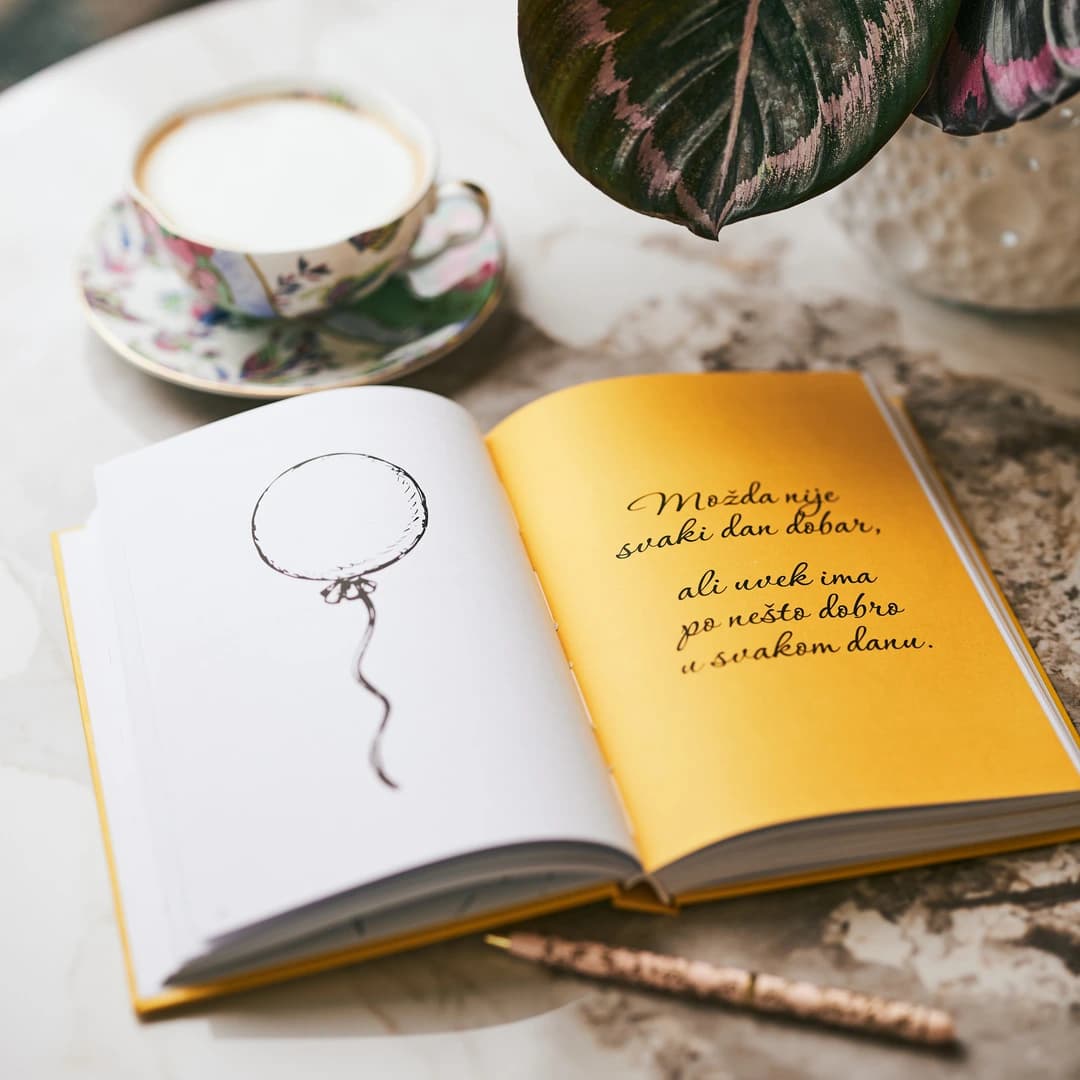 Možda nije
svaki dan dobar,
ali uvek ima
po nešto dobro
u svakom danu.